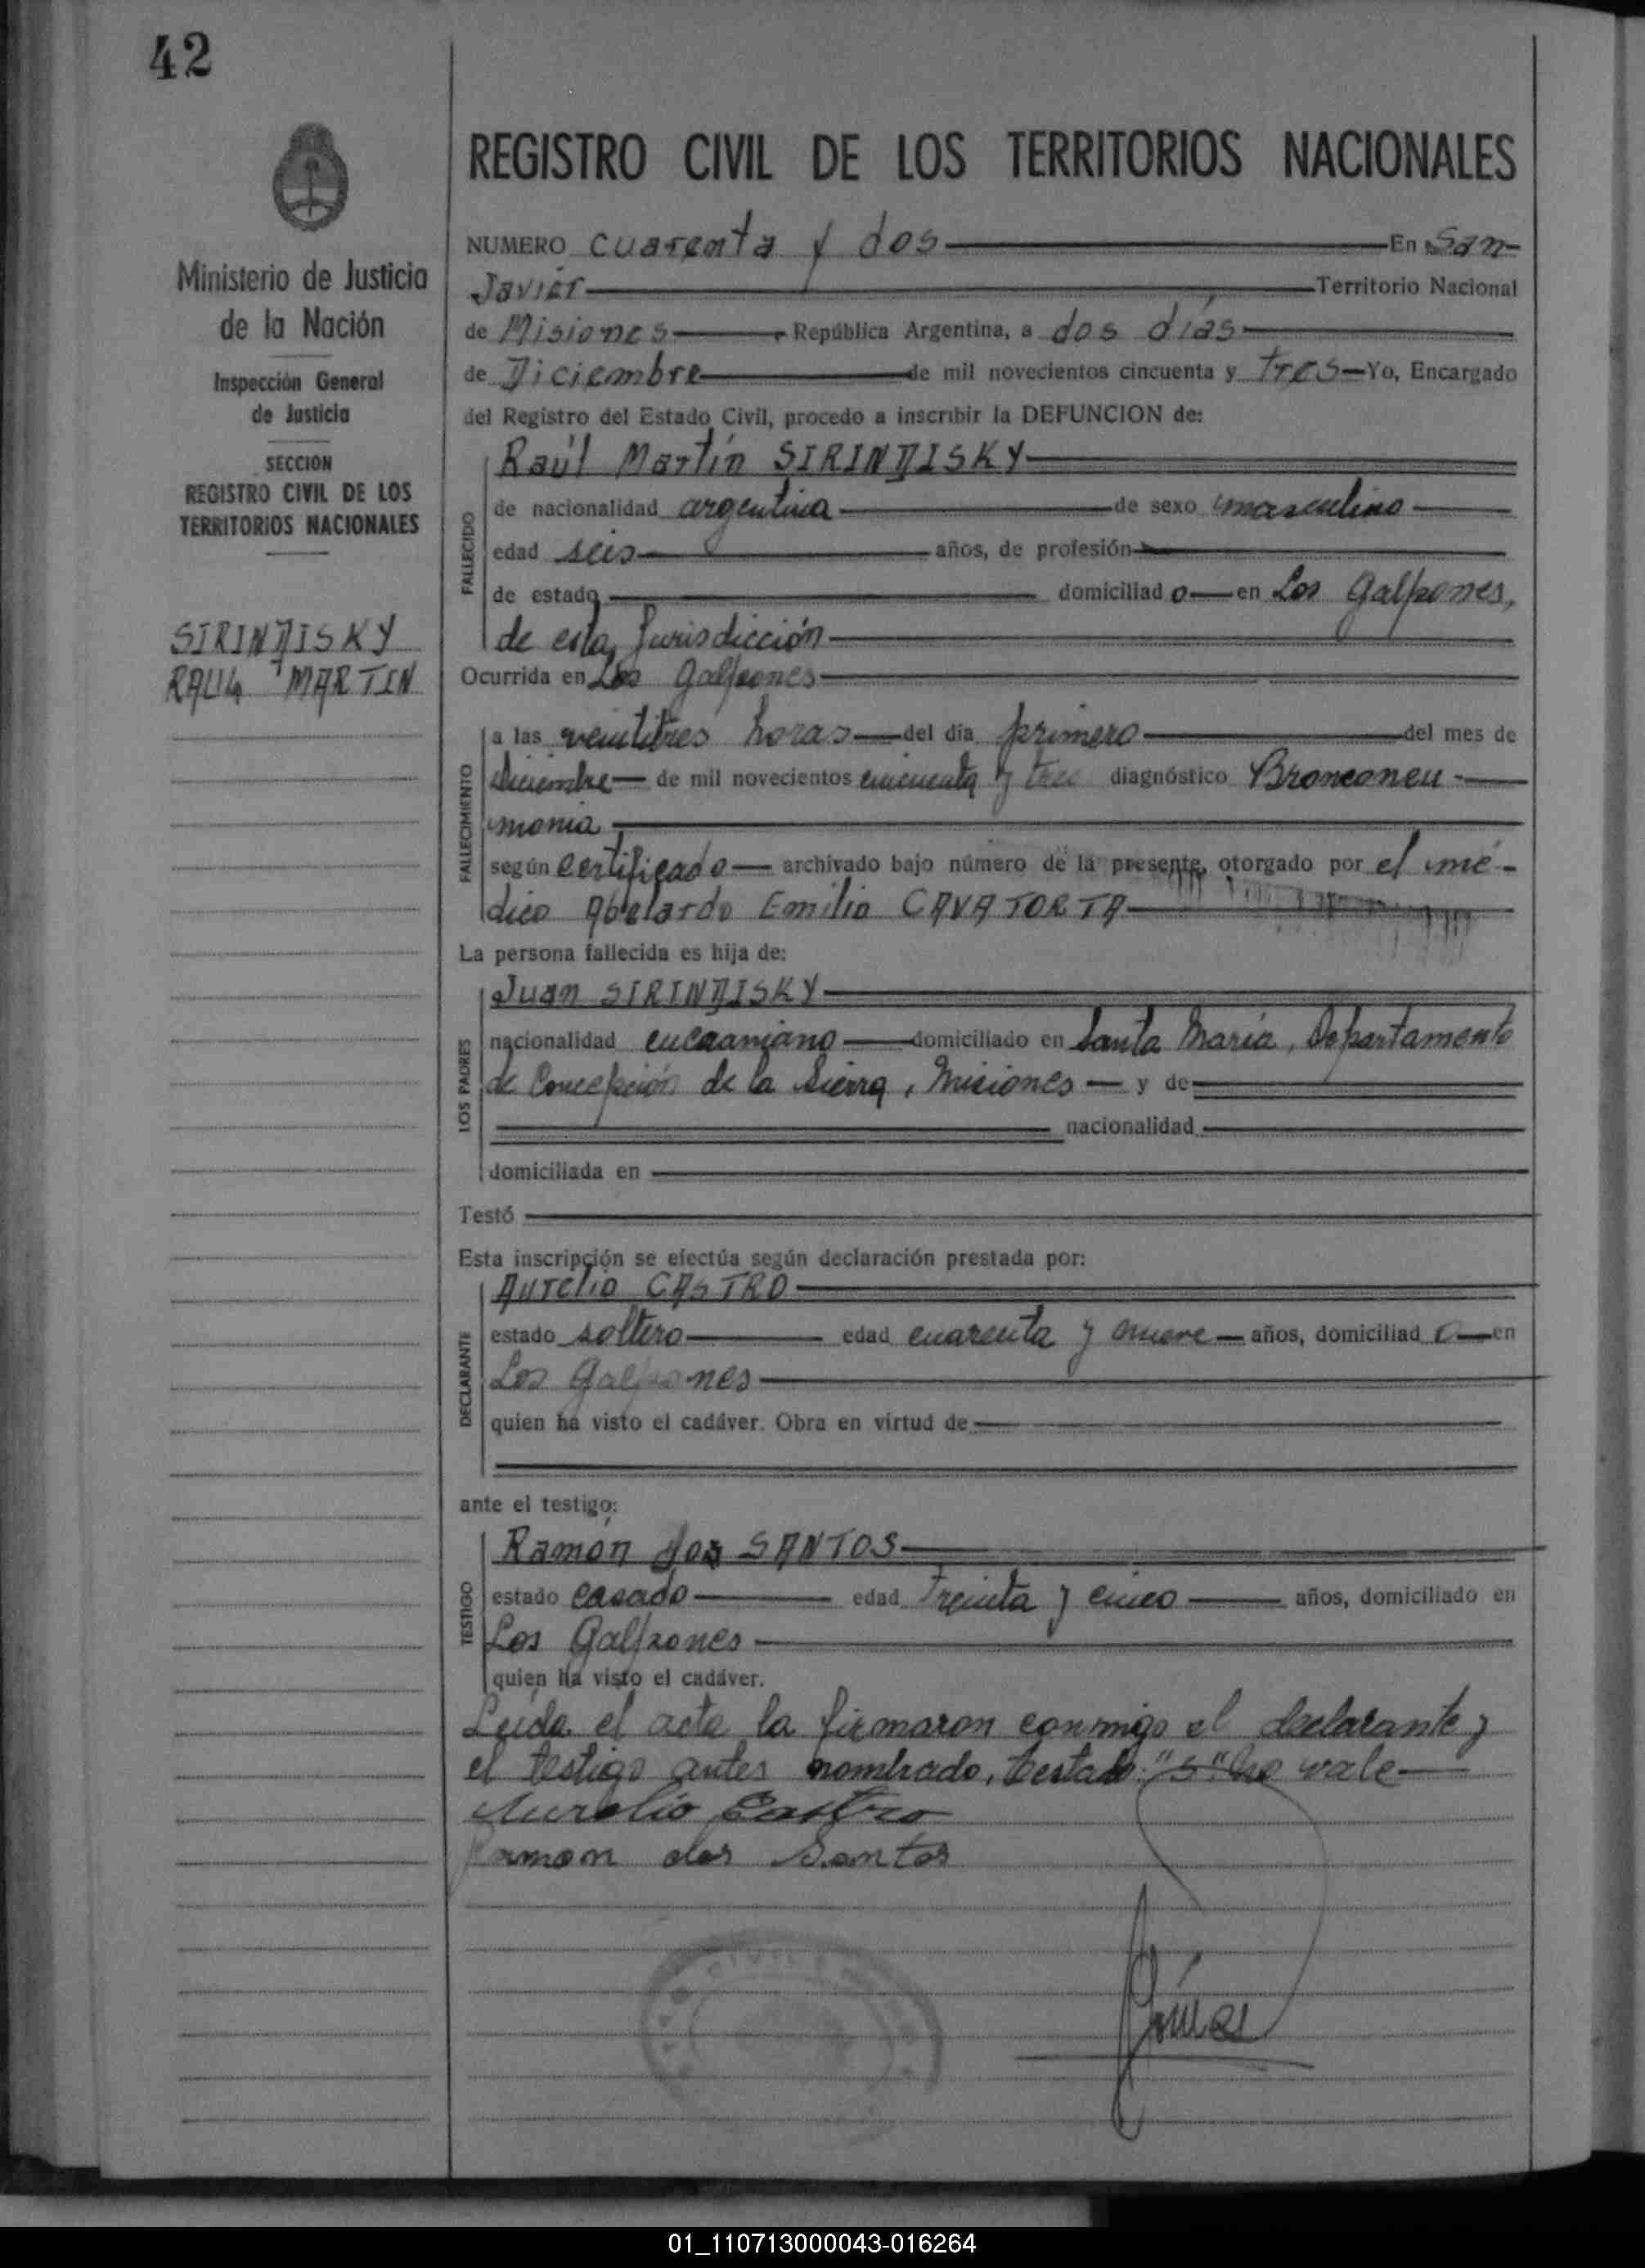 42
Ministerio de Justicia
de la Nación
Inspección General
de Justicia
SECCION
REGISTRO CIVIL DE LOS
TERRITORIOS NACIONALES
SIRINDISKY
RAUL MARTIN
REGISTRO CIVIL DE LOS TERRITORIOS NACIONALES
NUMERO cuarenta y dos En San
Javier Territorio Nacional
de Misiones República Argentina, a dos días
de Diciembre de mil novecientos cincuenta y tres Yo, Encargado
del Registro del Estado Civil, procedo a inscribir la DEFUNCION de:
FALLECIDO
Raúl Martín SIRINDISKY
de nacionalidad argentina de sexo masculino
edad seis años, de profesión
de estado domiciliad o en Los Galpones,
de esta Jurisdicción
Ocurrida en Los Galpones
FALLECIMIENTO
a las veintitres horas del día primero del mes de
diciembre de mil novecientos cincuenta y tres diagnóstico Bronconeu-
monia
según certificado archivado bajo número de la presente, otorgado por el mé-
dico Abelardo Emilio CAVATORTA
La persona fallecida es hija de:
LOS PADRES
Juan SIRINDISKY
nacionalidad eucraniano domiciliado en Santa María, Departamento
de Concepción de la Sierra, Misiones y de
nacionalidad
domiciliada en
Testó
Esta inscripción se efectúa según declaración prestada por:
DECLARANTE
Aurelio CASTRO
estado soltero edad cuarenta y nueve años, domiciliad o en
Los Galpones
quien ha visto el cadáver. Obra en virtud de
ante el testigo:
TESTIGO
Ramón dos SANTOS
estado casado edad treinta y cinco años, domiciliado en
Los Galpones
quien ha visto el cadáver.
Leída el acta la firmaron conmigo el declarante y
el testigo antes nombrado, testado: "s" No vale
Aurelio Castro
Ramon dos Santos
01_110713000043-016264